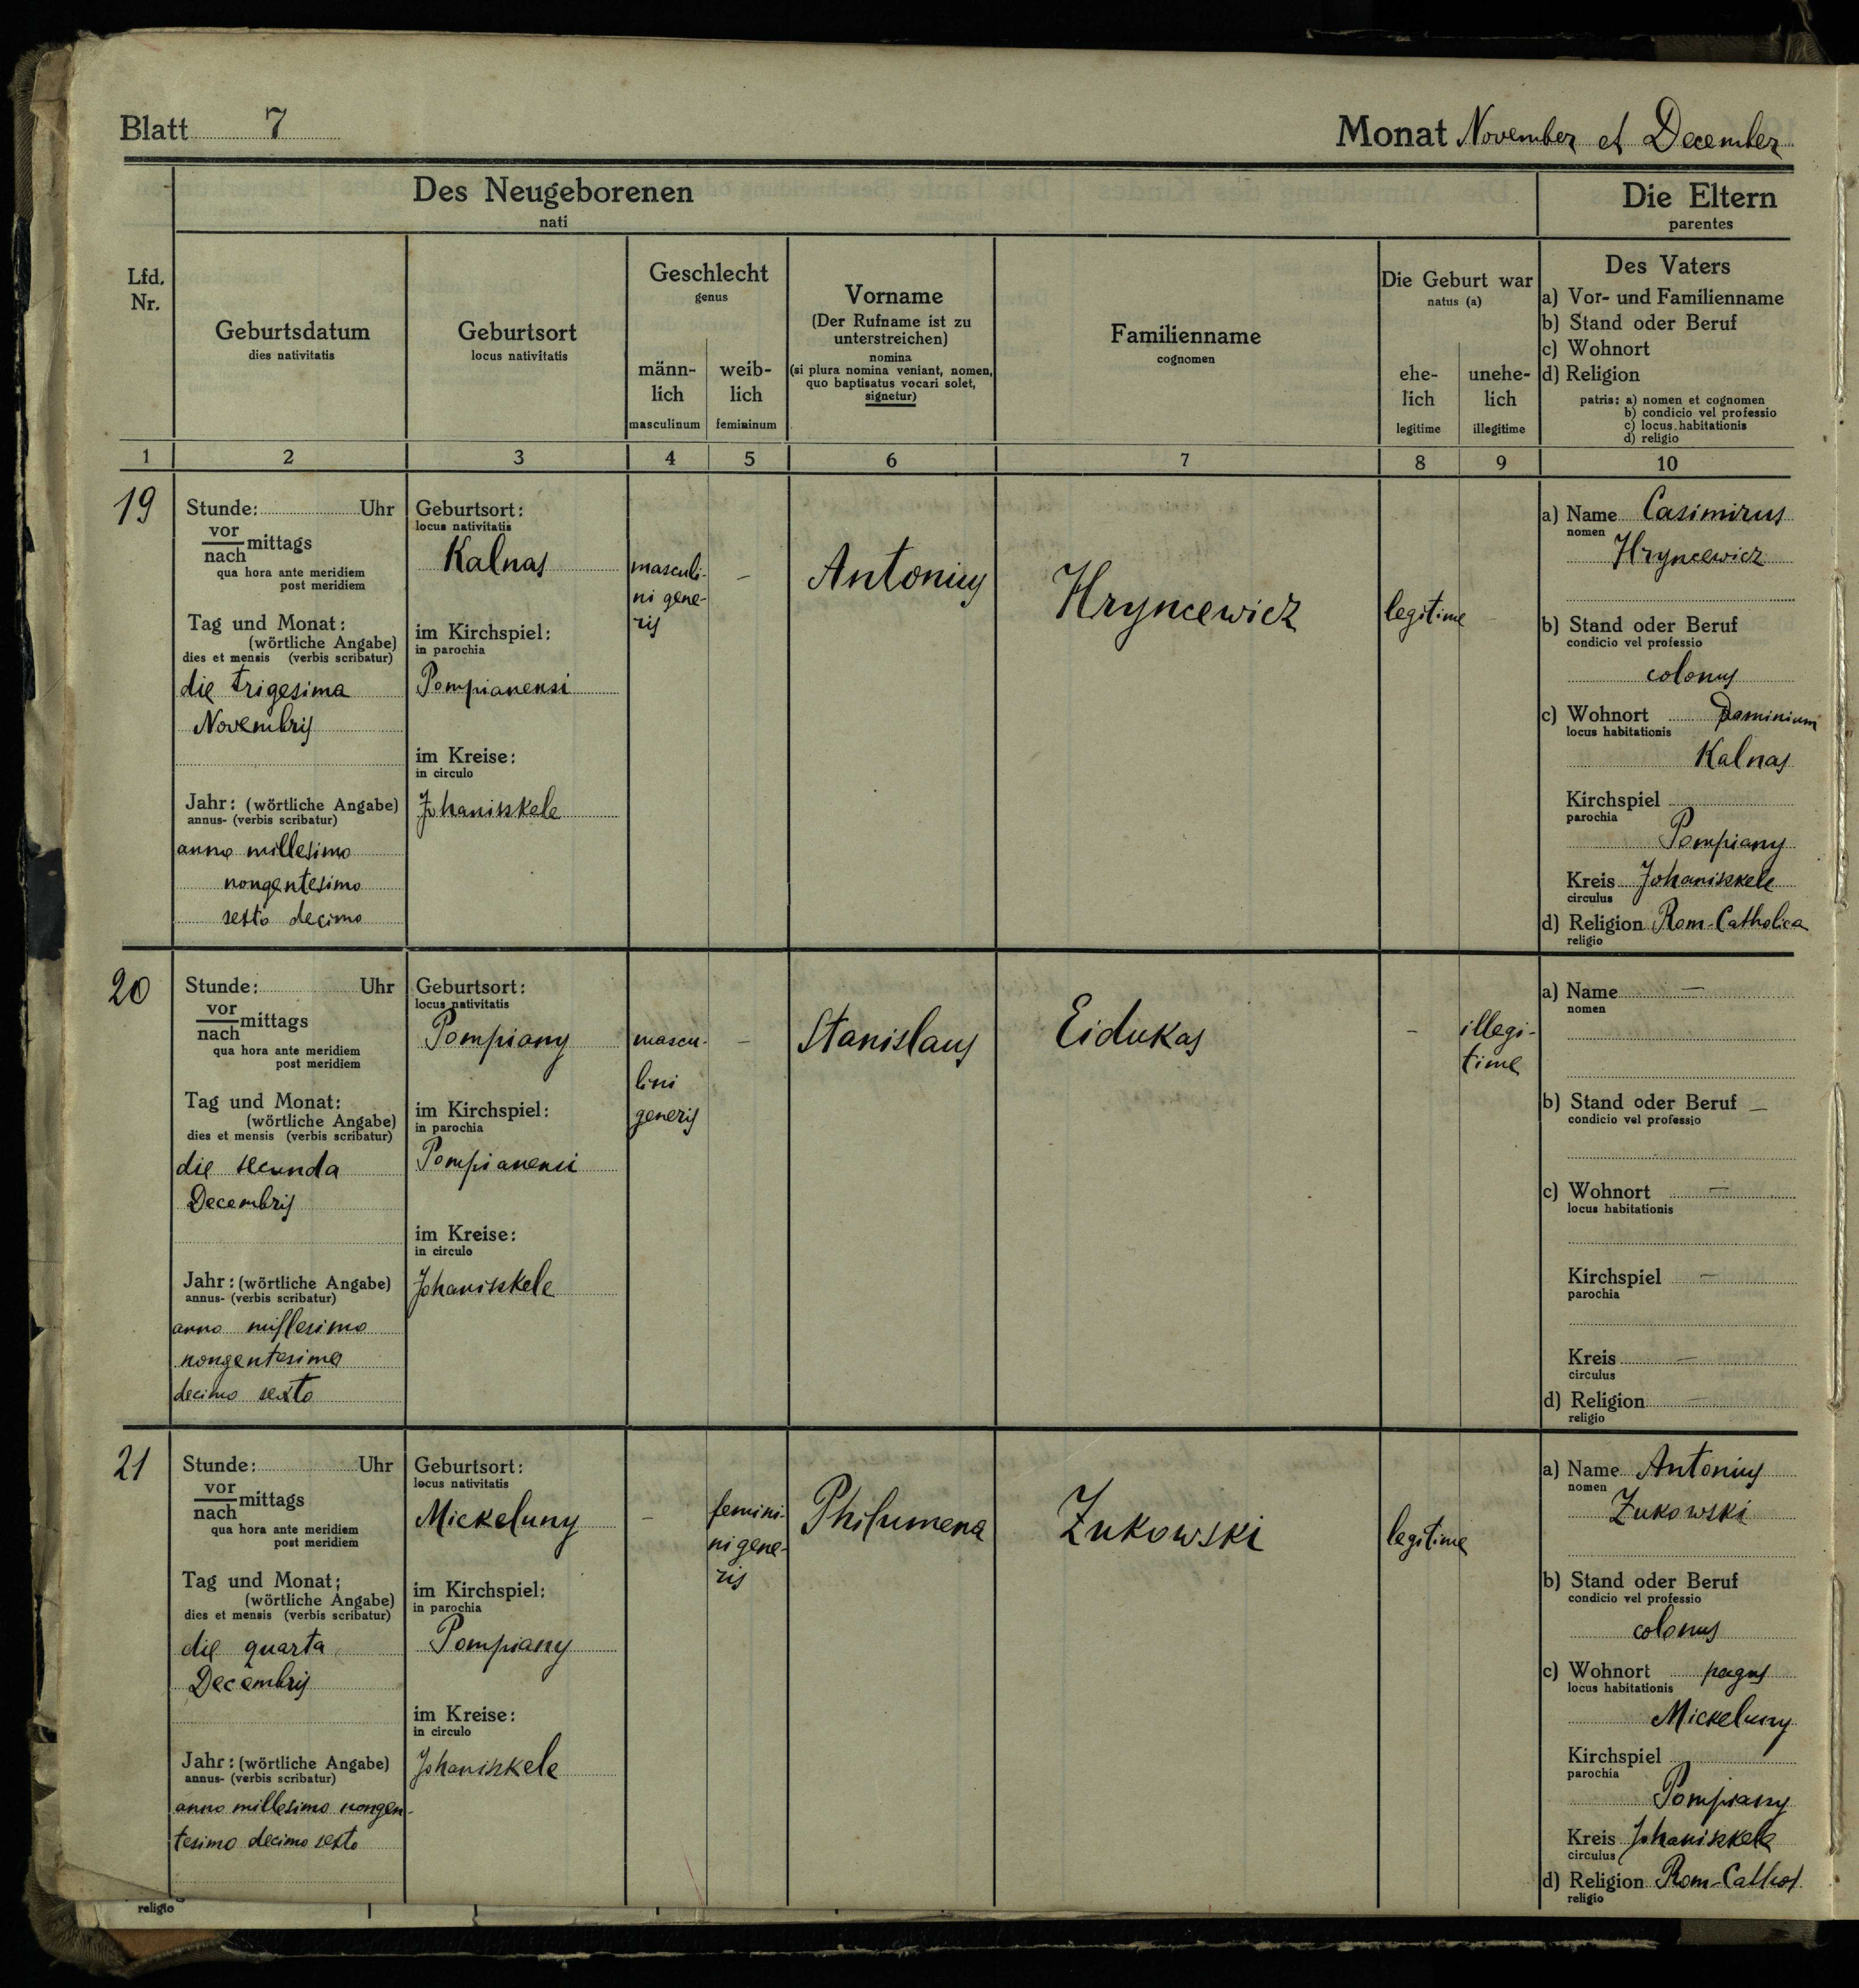 Blatt 7
Monat November et December
Des Neugeborenen
nati
Die Eltern
parentes
Lfd.
Nr.
Geburtsdatum
dies nativitatis
Geburtsort
locus nativitatis
Geschlecht
genus
männ-
lich
masculinum
weib-
lich
femininum
Vorname
(Der Rufname ist zu
unterstreichen)
nomina
(si plura nomina veniant, nomen,
quo baptisatus vocari solet,
signetur)
Familienname
cognomen
Die Geburt war
natus (a)
ehe-
lich
legitime
unehe-
lich
illegitime
Des Vaters
a) Vor- und Familienname
b) Stand oder Beruf
c) Wohnort
d) Religion
patris: a) nomen et cognomen
b) condicio vel professio
c) locus habitationis
d) religio
1 2 3 4 5 6 7 8 9 10
19
Stunde: Uhr
vor
nach mittags
qua hora ante meridiem
post meridiem
Tag und Monat:
(wörtliche Angabe)
dies et mensis (verbis scribatur)
die trigesima
Novembris
Jahr: (wörtliche Angabe)
annus- (verbis scribatur)
anno millesimo
nongentesimo
sexto decimo
Geburtsort:
locus nativitatis
Kalnas
im Kirchspiel:
in parochia
Pompianensi
im Kreise:
in circulo
Johaniskele
masculi-
ni gene-
ris
-
Antonius
Hryncewicz
legitime
a) Name Casimirus
nomen
Hryncewicz
b) Stand oder Beruf
condicio vel professio
colonus
c) Wohnort Dominium
locus habitationis
Kalnas
Kirchspiel
parochia
Pompiany
Kreis Johaniskele
circulus
d) Religion Rom-Catholica
religio
20
Stunde: Uhr
vor
nach mittags
qua hora ante meridiem
post meridiem
Tag und Monat:
(wörtliche Angabe)
dies et mensis (verbis scribatur)
die secunda
Decembris
Jahr: (wörtliche Angabe)
annus- (verbis scribatur)
anno millesimo
nongentesimo
decimo sexto
Geburtsort:
locus nativitatis
Pompiany
im Kirchspiel:
in parochia
Pompianensi
im Kreise:
in circulo
Johaniskele
mascu-
lini
generis
-
Stanislaus
Eidukas
-
illegi-
time
a) Name -
nomen
b) Stand oder Beruf -
condicio vel professio
c) Wohnort -
locus habitationis
Kirchspiel -
parochia
Kreis -
circulus
d) Religion -
religio
21
Stunde: Uhr
vor
nach mittags
qua hora ante meridiem
post meridiem
Tag und Monat:
(wörtliche Angabe)
dies et mensis (verbis scribatur)
die quarta
Decembris
Jahr: (wörtliche Angabe)
annus- (verbis scribatur)
anno millesimo nongen-
tesimo decimo sexto
Geburtsort:
locus nativitatis
Mickeluny
im Kirchspiel:
in parochia
Pompiany
im Kreise:
in circulo
Johaniskele
-
femini-
ni gene-
ris
Philumena
Zukowski
legitime
a) Name Antonius
nomen
Zukowski
b) Stand oder Beruf
condicio vel professio
colonus
c) Wohnort pagus
locus habitationis
Mickeluny
Kirchspiel
parochia
Pompiany
Kreis Johaniskele
circulus
d) Religion Rom-Cathol
religio
religio